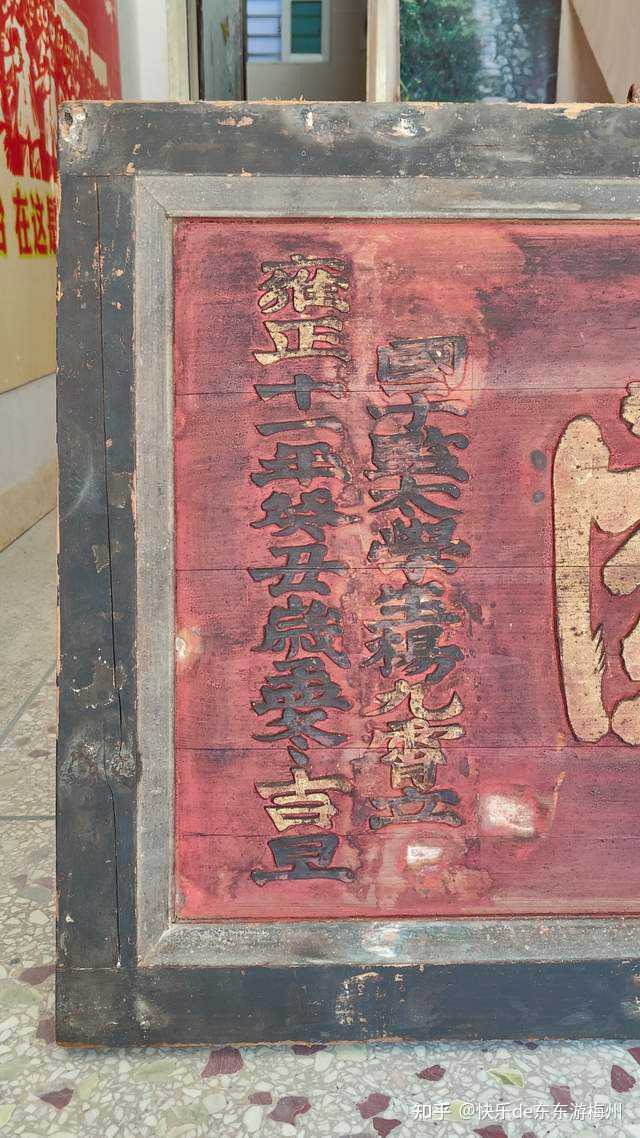 國子監太學生楊九霄立
雍正十一年癸丑歲孟冬吉旦
在这
知乎 @快乐de东东游梅州